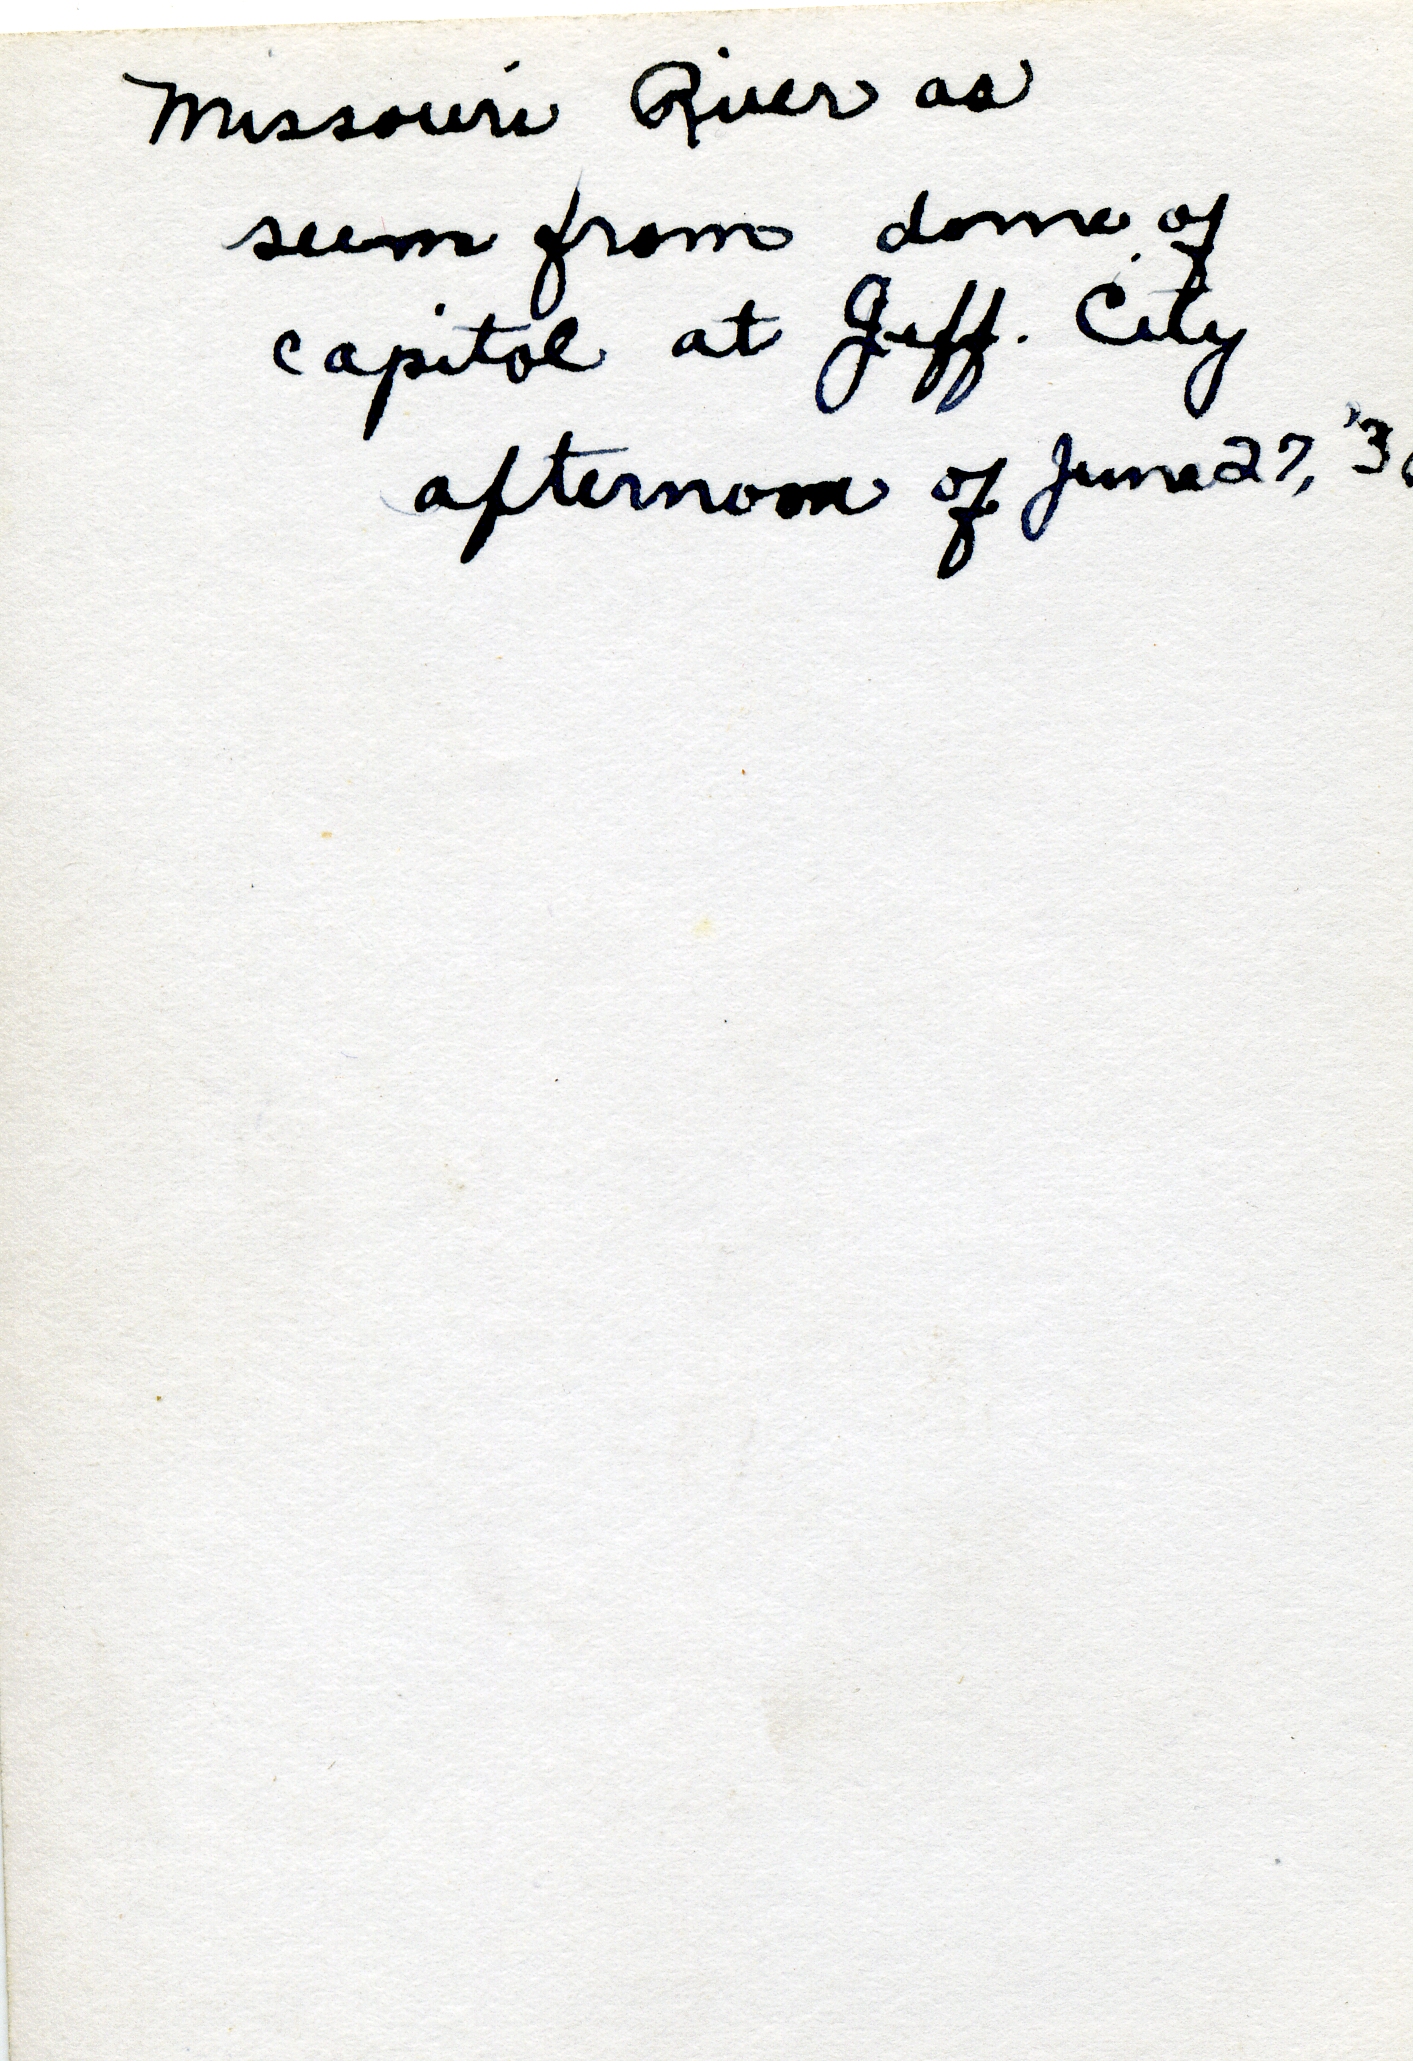 Missouri River as
seen from dome of
capitol at Jeff. City
afternoon of June 27, '3